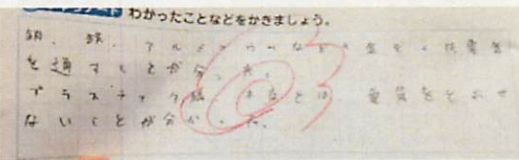 わかったことなどをかきましょう。
銅、鉄、アルミニウムなど 金ぞくは電気
を通すことが分かった。
プラスチック 紙 木などは 電気をとおせ
ないことが分かった。